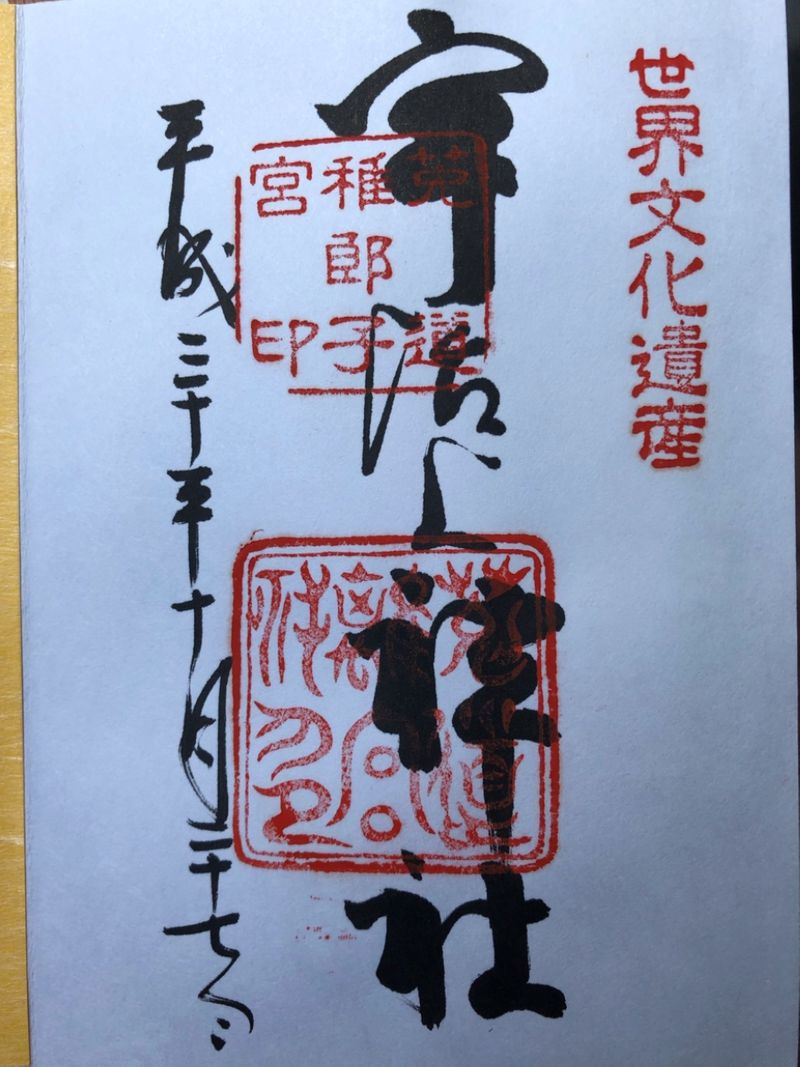 世界文化遺産
宇治上神社
菟道
稚郎子
宮印
平成三十年十月二十七日